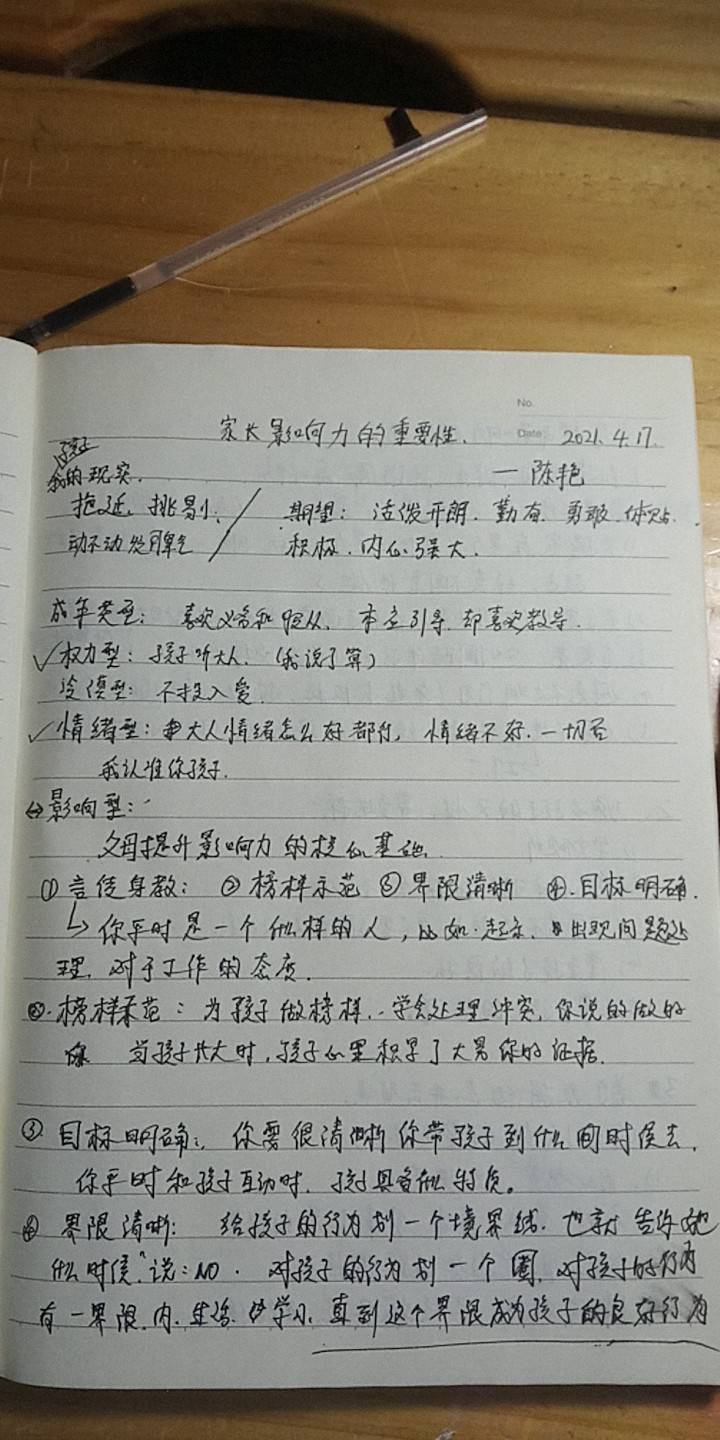 No.
家长影响力的重要性. Date 2021. 4. 17.
孩子
我的现实. — 陈艳
拖延. 挑剔. 期望: 活泼开朗. 勤奋. 勇敢. 体贴.
动不动发脾气 积极. 内心强大.
成年类型: 喜欢义务和服从, 本应引导, 却喜欢教导.
✓权力型: 孩子听大人. (我说了算)
型: 不投入爱.
✓情绪型: 大人情绪怎么好都行, 情绪不好. 一切否
我认准你孩子.
影响型:
父母提升影响力的核心基础.
① 言传身教: ② 榜样示范 ③ 界限清晰 ④. 目标明确.
↳ 你平时是一个什么样的人, 比如. 起床. 出现问题处
理. 对于工作的态度.
②. 榜样示范: 为孩子做榜样. 学会处理冲突, 你说的做的
当孩子长大时, 孩子心里积累了大量你的证据.
③ 目标明确: 你要很清晰你带孩子到什么时候去,
你平时和孩子互动时. 孩子具备什么特质。
④ 界限清晰: 给孩子的行为划一个境界线. 也就告诉她
什么时候"说: NO. 对孩子的行为划一个圈, 对孩子的行为
有一界限. 内. 生活. 学习. 直到这个界限成为孩子的良好行为